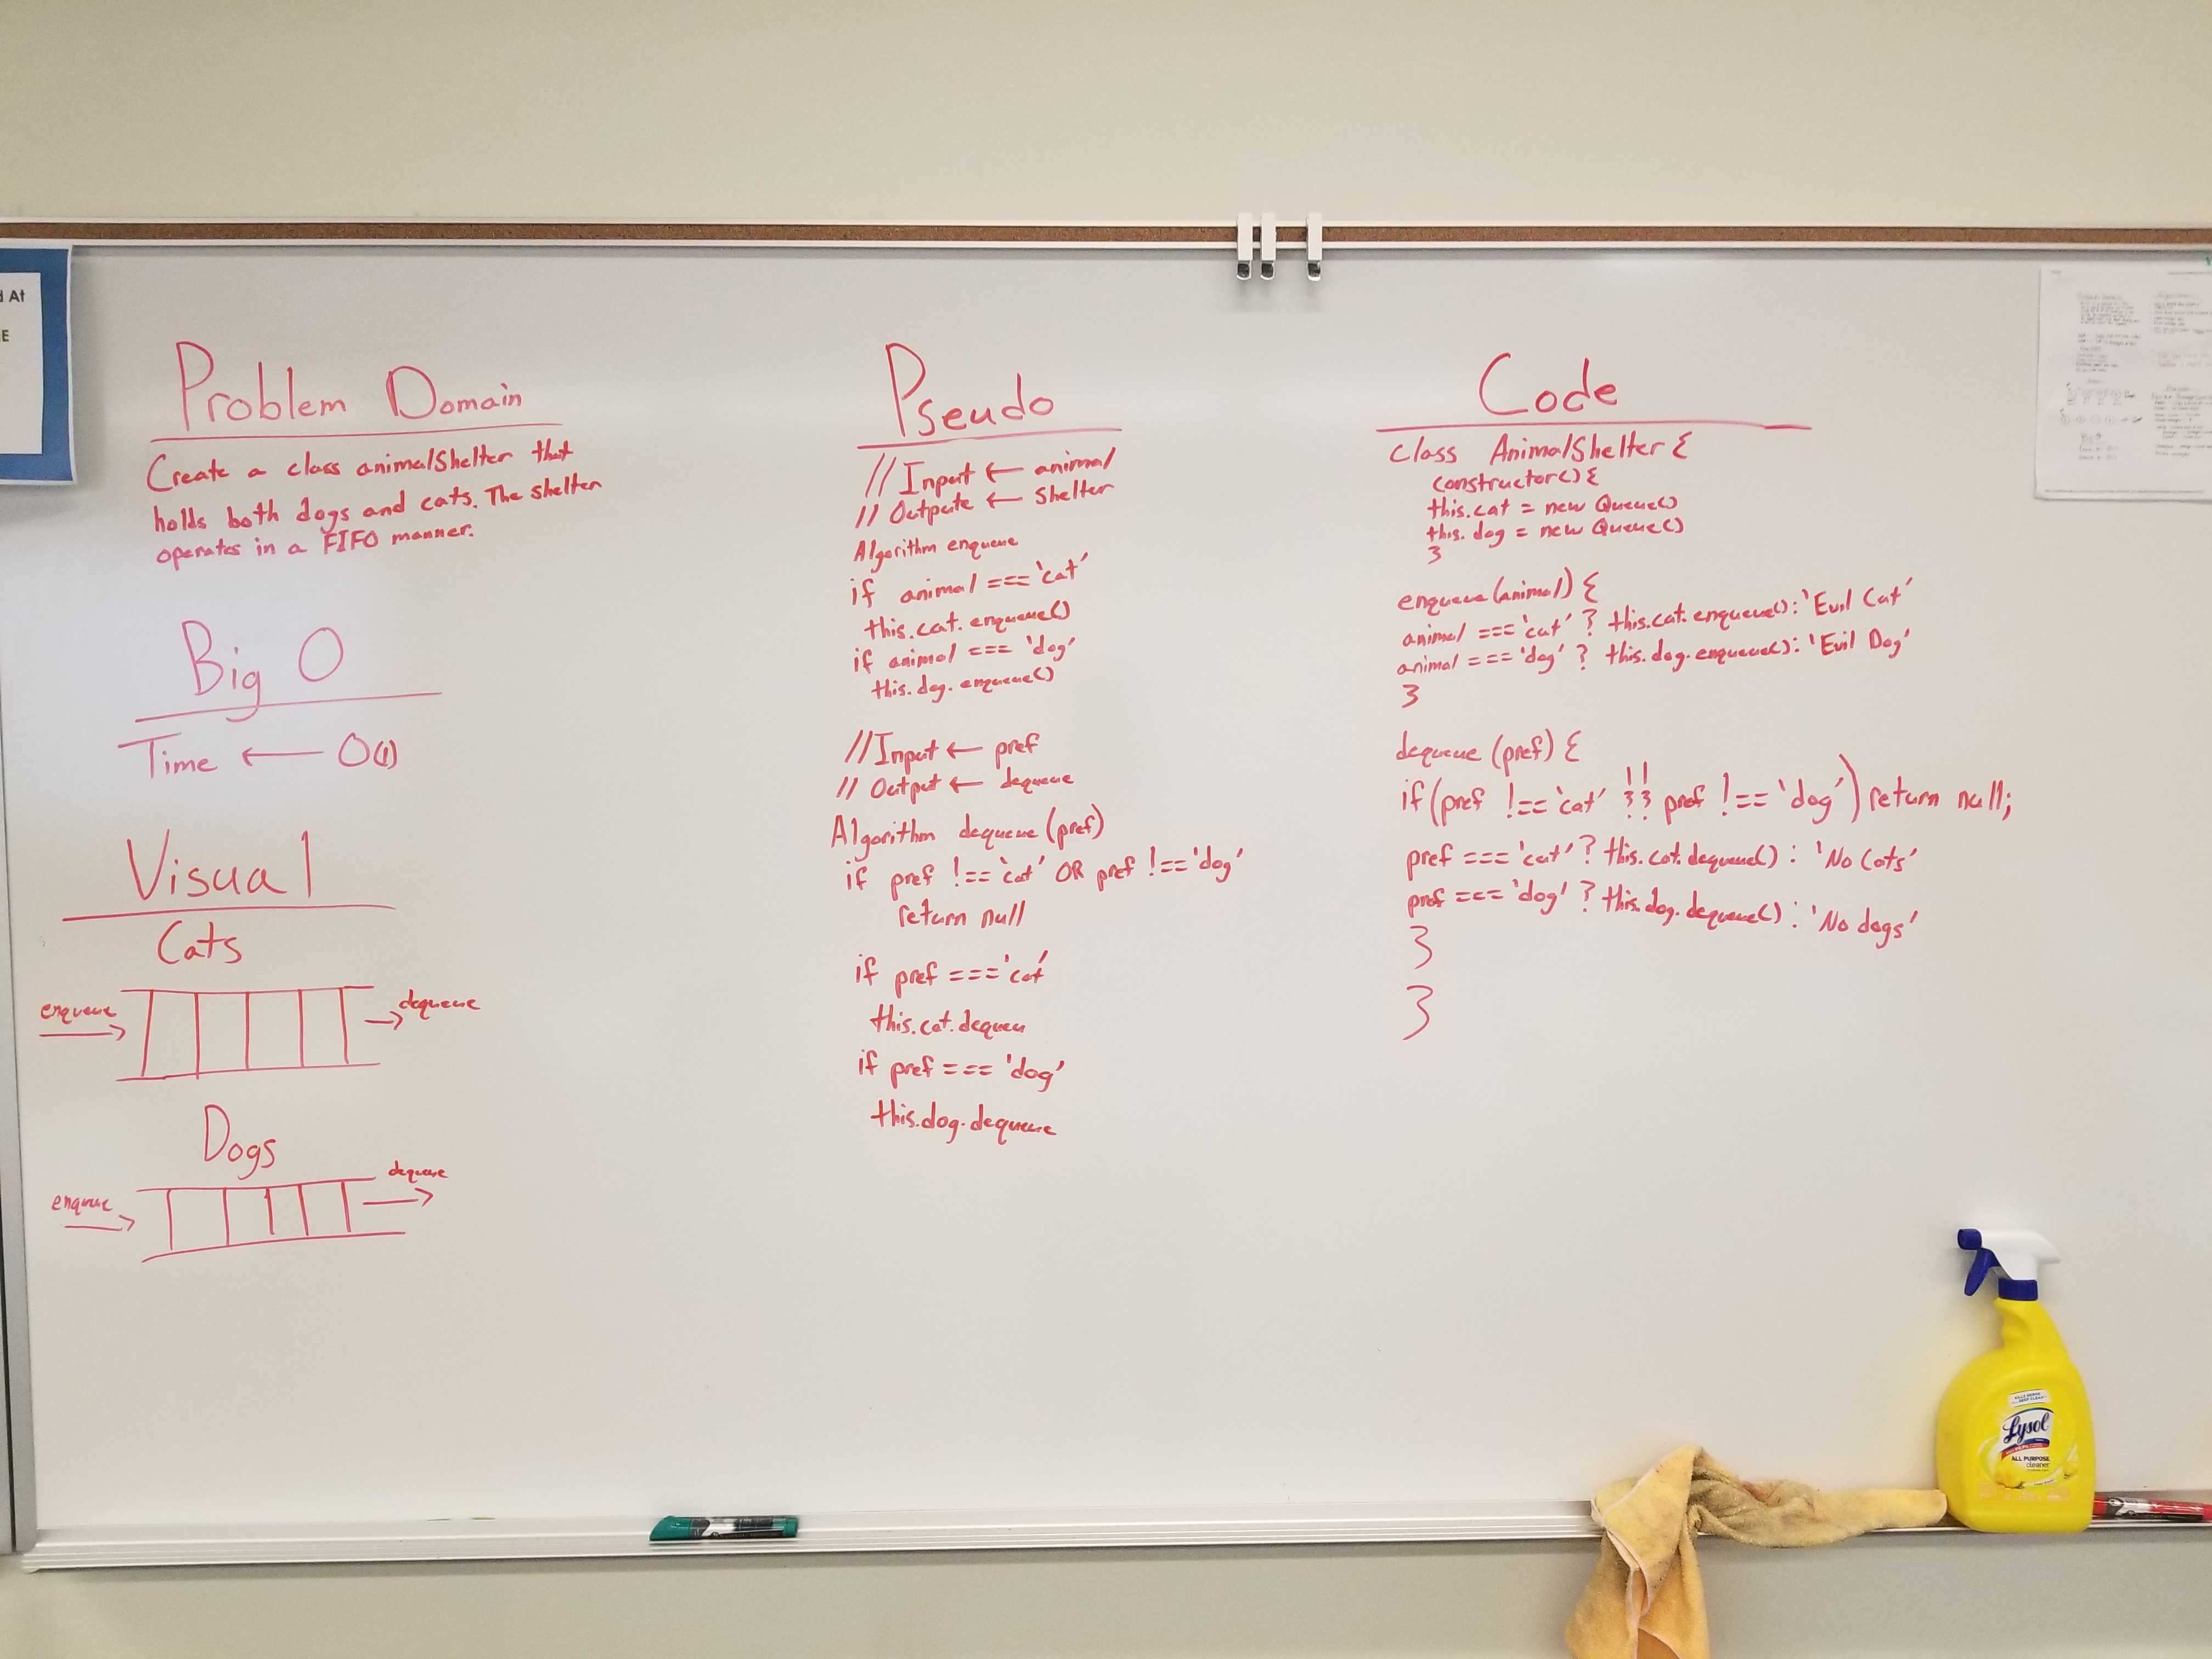 d At
E
Problem Domain
Create a class animalShelter that
holds both dogs and cats. The shelter
operates in a FIFO manner.
Big O
Time ← O(1)
Visual
Cats
enqueue →
→ dequeue
Dogs
enqueue →
dequeue →
Pseudo
// Input ← animal
// Outpute ← Shelter
Algorithm enqueue
if animal === 'cat'
this.cat.enqueue()
if animal === 'dog'
this.dog.enqueue()
// Input ← pref
// Output ← dequeue
Algorithm dequeue (pref)
if pref !== 'cat' OR pref !== 'dog'
return null
if pref === 'cat'
this.cat.dequeu
if pref === 'dog'
this.dog.dequeue
Code
class AnimalShelter {
constructor() {
this.cat = new Queue()
this.dog = new Queue()
}
enqueue (animal) {
animal === 'cat' ? this.cat.enqueue() : 'Evil Cat'
animal === 'dog' ? this.dog.enqueue() : 'Evil Dog'
}
dequeue (pref) {
if (pref !== 'cat' || pref !== 'dog') return null;
pref === 'cat' ? this.cat.dequeue() : 'No Cats'
pref === 'dog' ? this.dog.dequeue() : 'No dogs'
}
}
Lysol
ALL PURPOSE
cleaner